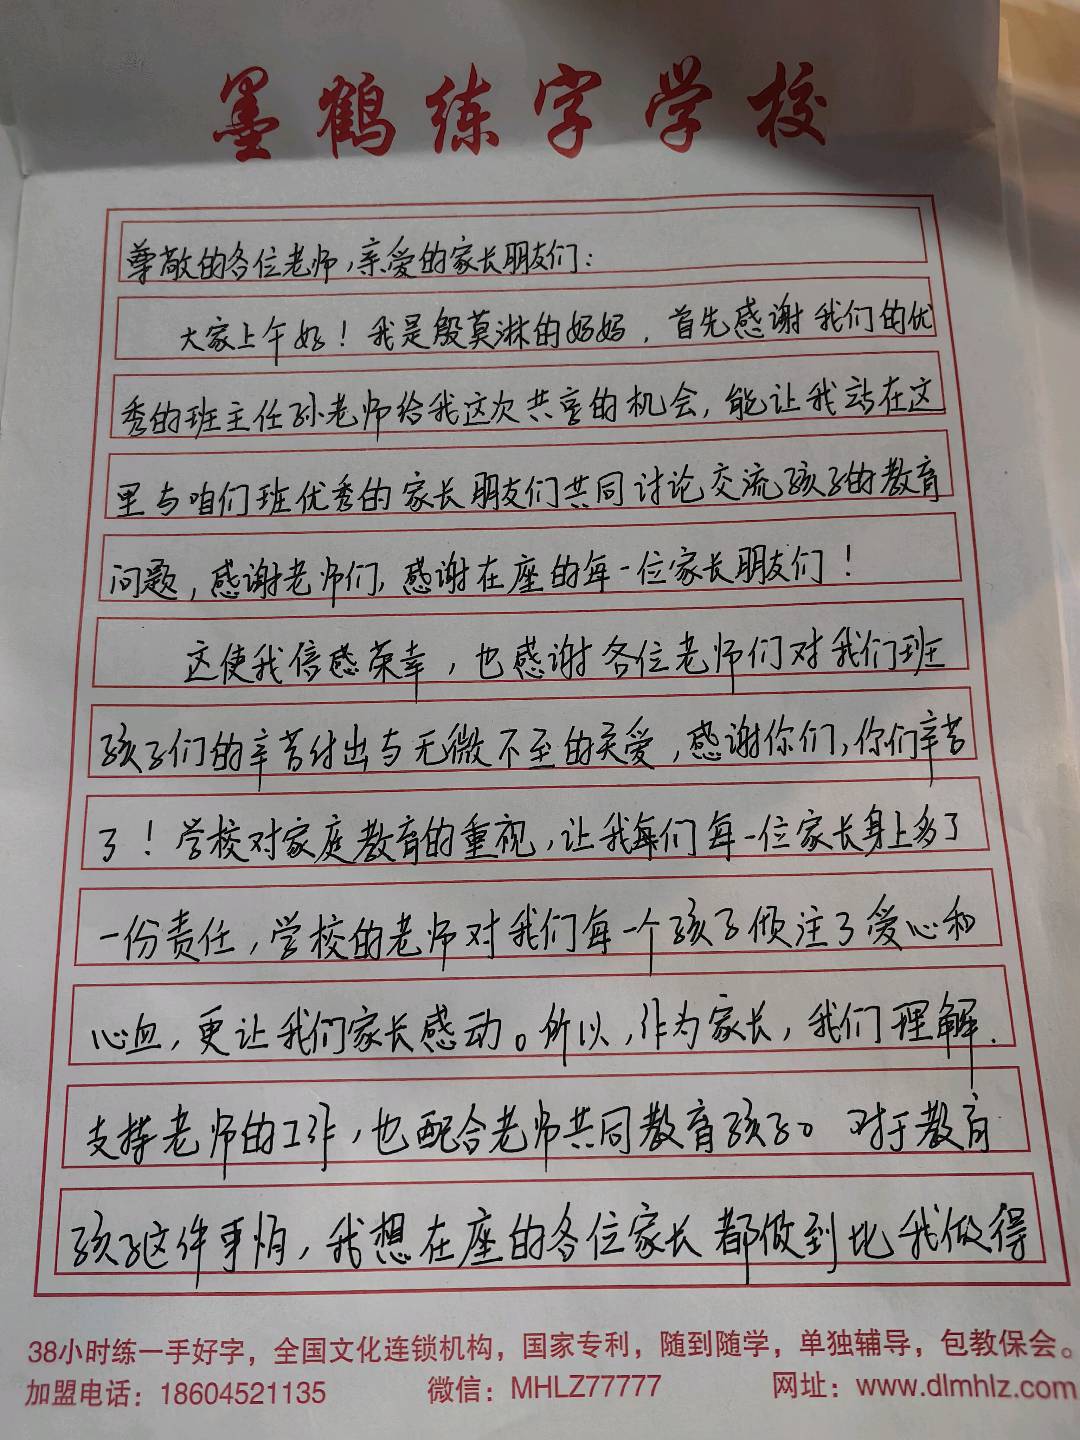 墨鹤练字学校
尊敬的各位老师,亲爱的家长朋友们:
大家上午好!我是殷莫淋的妈妈,首先感谢我们的优
秀的班主任孙老师给我这次共享的机会,能让我站在这
里与咱们班优秀的家长朋友们共同讨论交流孩子的教育
问题,感谢老师们,感谢在座的每一位家长朋友们!
这使我倍感荣幸,也感谢各位老师们对我们班
孩子们的辛苦付出与无微不至的关爱,感谢你们,你们辛苦
了!学校对家庭教育的重视,让我们每一位家长身上多了
一份责任,学校的老师对我们每一个孩子倾注了爱心和
心血,更让我们家长感动。所以,作为家长,我们理解.
支持老师的工作,也配合老师共同教育孩子。对于教育
孩子这件事情,我想在座的各位家长都做到比我做得
38小时练一手好字,全国文化连锁机构,国家专利,随到随学,单独辅导,包教保会。
加盟电话:18604521135 微信:MHLZ77777 网址:www.dlmhlz.com